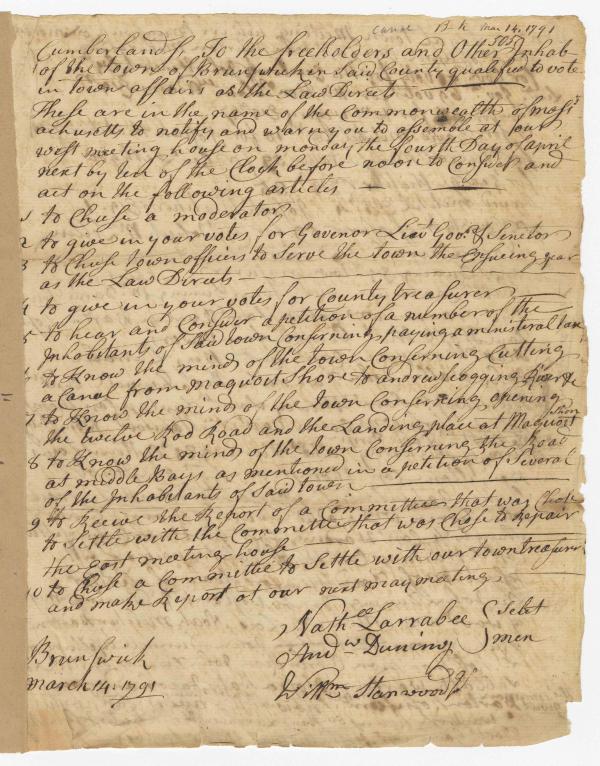 canal Bk Mar 14, 1791
505
Cumberland Ss, To the freeholders and Other Inhab
of the town of Brunswick in Said County qualefied to vote
in town affairs as the Law Directs
These are in the name of the Commonwealth of mass
achusetts to notify and warn you to assemble at our
west meeting house on monday the fourth Day of april
next by ten of the Clock before noon to Consider and
act on the following articles
1 to Chuse a moderator
2 to give in your votes for Govenor Lieut Govr & Senetor
3 to Chuse town officers to Serve the town the Ensueing year
as the Law Directs
4 to give in your votes for County treasurer
5 to hear and Consider a petition of a number of the
Inhabitants of Said town Conserning paying a ministeral tax
6 to Know the mind of the town Conserning Cutting
a Canal from Maquoit Shore to andrewscogging River &c
7 to Know the mind of the town Conserning opening
the twelve Rod Road and the Landing place at Maquoit Shore
8 to Know the mind of the town Conserning the Road
at middle Bays as mentioned in a petition of Several
of the Inhabitants of Said town
9 to Receive the Report of a Committee that was Chose
to Settle with the Committee that was Chose to Repair
the East meeting house
10 to Chuse a Committee to Settle with our town treasurer
and make Report at our next may meeting
Nathll Larrabee Select
Andw Duning men
Brunswick
march 14: 1791
Willm Stanwood